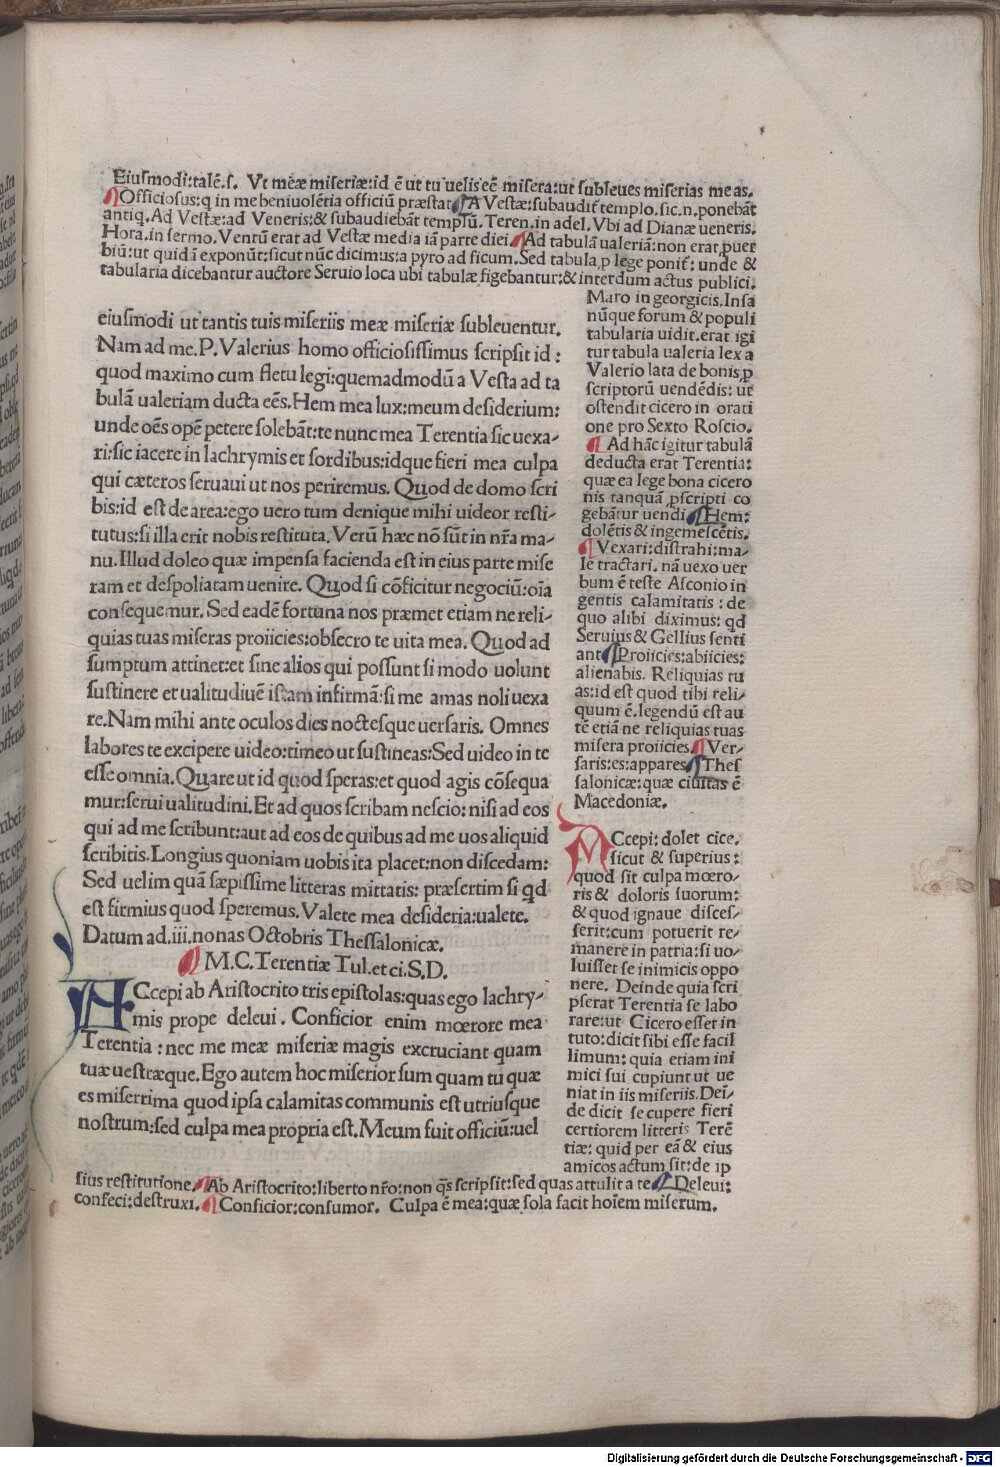 Eiusmodi:talē.s. Vt meæ miseriæ:id ē ut tu uelis eē misera:ut subleues miserias meas.
Officiosus:q in me beniuolētia officiū præstat A Vestæ:subaudit templo.sic.n.ponebāt
antiq. Ad Vestæ:ad Veneris:& subaudiebāt templū. Teren.in adel. Vbi ad Dianæ ueneris.
Hora.in sermo. Ventū erat ad Vestæ media iā parte diei Ad tabulā ualeriā:non erat puer
biū:ut quidā exponūt:sicut nūc dicimus:a pyro ad ficum. Sed tabula p lege ponit: unde &
tabularia dicebantur auctore Seruio loca ubi tabulæ figebantur:& interdum actus publici.
eiusmodi ut tantis tuis miseriis meæ miseriæ subleuentur.
Nam ad me.P.Valerius homo officiosissimus scripsit id:
quod maximo cum fletu legi:quemadmodū a Vesta ad ta
bulā ualeriam ducta eēs.Hem mea lux:meum desiderium:
unde oēs opē petere solebāt:te nunc mea Terentia sic uexa-
ri:sic iacere in lachrymis et sordibus:idque fieri mea culpa
qui cæteros seruaui ut nos periremus. Quod de domo scri
bis:id est de area:ego uero tum denique mihi uideor resti-
tutus:si illa erit nobis restituta. Verū hæc nō sūt in nr̄a ma-
nu. Illud doleo quæ impensa facienda est in eius parte mise
ram et despoliatam uenire. Quod si cōficitur negociū:oīa
consequemur. Sed eadē fortuna nos præmet etiam ne reli-
quias tuas miseras proiicies:obsecro te uita mea. Quod ad
sumptum attinet:et sine alios qui possunt si modo uolunt
sustinere et ualitudiuē istam infirmā:si me amas noli uexa
re.Nam mihi ante oculos dies noctesque uersaris. Omnes
labores te excipere uideo:timeo ut sustineas:Sed uideo in te
esse omnia. Quare ut id quod speras:et quod agis cōsequa
mur:serui ualitudini. Et ad quos scribam nescio: nisi ad eos
qui ad me scribunt:aut ad eos de quibus ad me uos aliquid
scribitis.Longius quoniam uobis ita placet:non discedam:
Sed uelim quā sæpissime litteras mittatis: præsertim si qd
est firmius quod speremus. Valete mea desideria:ualete.
Datum ad.iii.nonas Octobris Thessalonicæ.
M.C.Terentiæ Tul.et ci.S.D.
ACcepi ab Aristocrito tris epistolas:quas ego lachry-
mis prope deleui. Conficior enim mœrore mea
Terentia : nec me meæ miseriæ magis excruciant quam
tuæ uestræque.Ego autem hoc miserior sum quam tu quæ
es miserrima quod ipsa calamitas communis est utriusque
nostrum:sed culpa mea propria est.Meum fuit officiū:uel
Maro in georgicis.Insa
nūque forum & populi
tabularia uidit.erat igi
tur tabula ualeria lex a
Valerio lata de bonis p
scriptorū uendēdis: ut
ostendit cicero in orati
one pro Sexto Roscio.
Ad hāc igitur tabulā
deducta erat Terentia:
quæ ea lege bona cicero
nis tanquā pscripti co
gebātur uendi Hem:
dolētis & ingemescētis.
Vexari:distrahi:ma-
le tractari. nā uexo uer
bum ē teste Asconio in
gentis calamitatis : de
quo alibi diximus: qd
Seruius & Gellius senti
ant Proiicies:abiicies:
alienabis. Reliquias tu
as:id est quod tibi reli-
quum ē.legendū est au
tē etiā ne reliquias tuas
misera proiicies. Ver-
saris:es:appares Thes
salonicæ:quæ ciuitas ē
Macedoniæ.
ACcepi: dolet cice.
sicut & superius:
quod sit culpa mœro-
ris & doloris suorum:
& quod ignaue disces-
serit:cum potuerit re-
manere in patria:si uo-
luisset se inimicis oppo
nere. Deinde quia scri
pserat Terentia se labo
rare:ut Cicero esset in
tuto:dicit sibi esse facil
limum: quia etiam ini
mici sui cupiunt ut ue
niat in iis miseriis.Dei-
de dicit se cupere fieri
certiorem litteris Terē
tiæ: quid per eā & eius
amicos actum sit:de ip
sius restitutione. Ab Aristocrito:liberto nr̄o:non q̄s scripsit:sed quas attulit a te Deleui:
confeci:destruxi. Conficior:consumor. Culpa ē mea:quæ sola facit hoīem miserum.
Digitalisierung gefördert durch die Deutsche Forschungsgemeinschaft - DFG